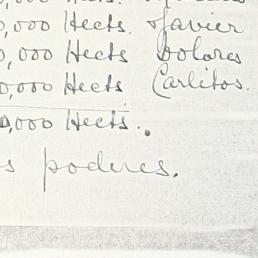 0,000 Hects. Javier
0,000 Hects Dolores
0,000 Hects Carlitos.
0,000 Hects..
s poderes.